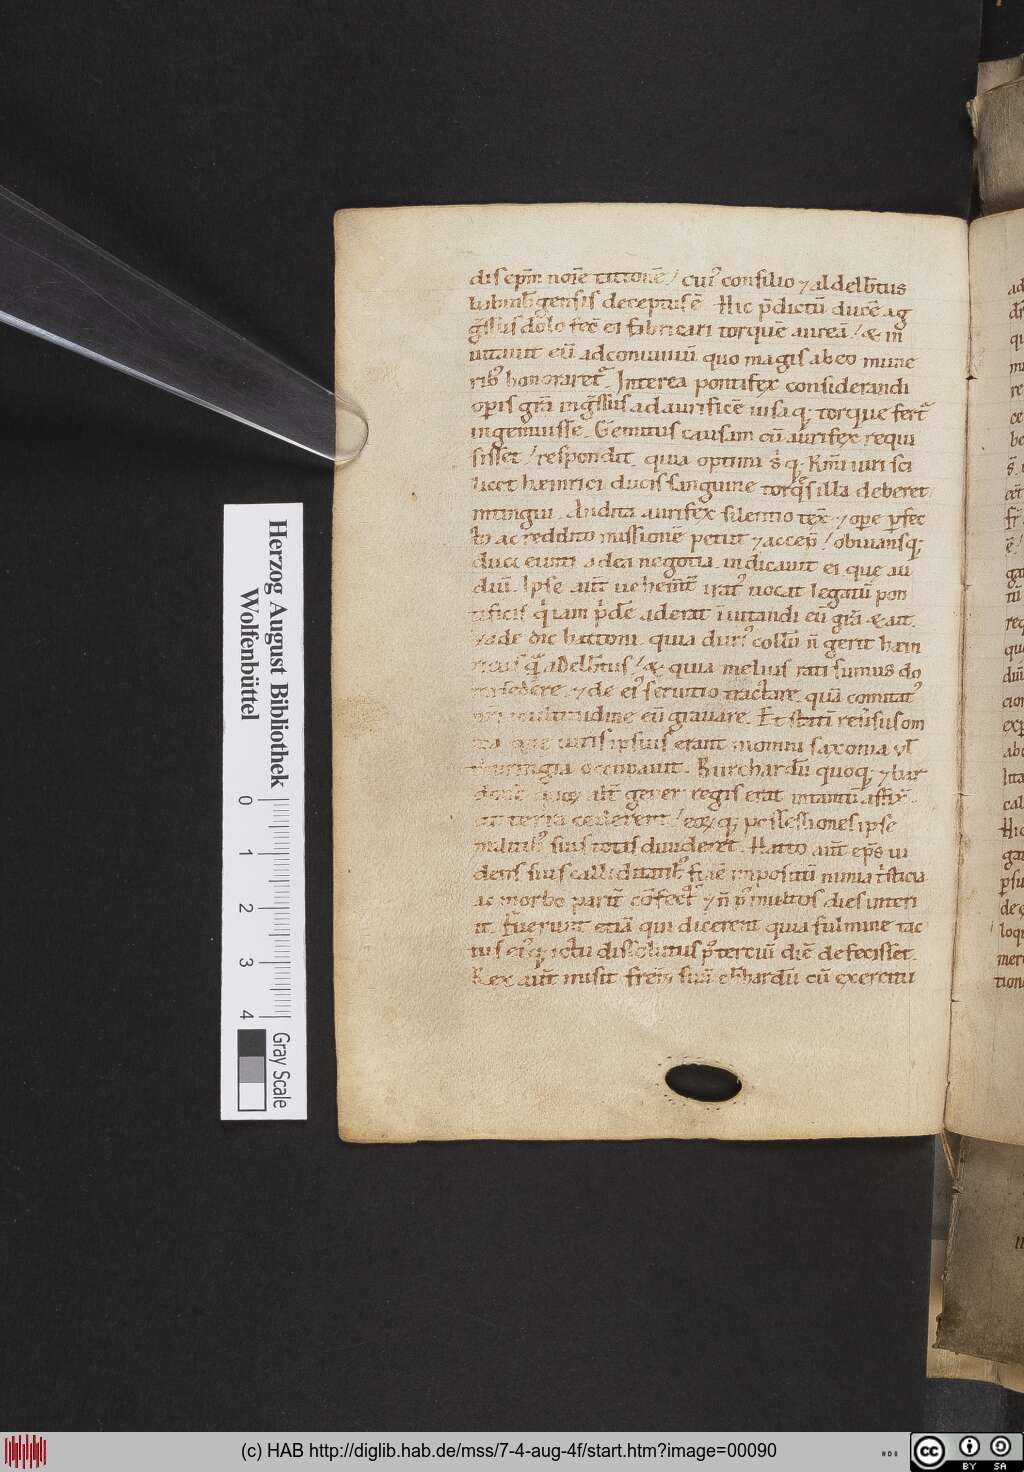 dis ep̄m noīe tittonē / cuiꝰ consilio ⁊ aldelb̄tus
babinb̄gensis deceptus ē Hic p̄dictū ducē ag
g̃ssus dolo fec̄ ei fabricari torquē aureā / & in
uitauit eū ad conuiuiū quo magis ab eo mune
ribꝰ honoraretᷣ. Interea pontifex considerandi
opis grā ing̃ssus ad aurificē uisaq; torque fertᷣ
ingemuisse. Gemitus causam cū aurifex requi
sisset / respondit. quia optimi
licet heinrici ducis sanguine torq̄s illa deberet
intingui. Audita aurifex silentio tex̄ ⁊ ope pfec
to ac reddito missionē petiit ⁊ accep̄ / obuiansq;
duci eunti ad ea negotia. indicauit ei que au
diuı̄. Ipse aūt uehem̄t̄ iratꝰ uocat legatū pon
tificis qͥ iam p̄dē aderat īuitandi eū grā & ait.
Uade dic hattoni quia duriꝰ collū n̄ gerit hein
ricus qͣ̄ adelb̄tus / & quia melius rati sumus do
mi sedere. ⁊ de eiꝰ seruitio tractare. quā comitatꝰ
nr̄i multitudine eū grauare. Et statī reūsus om
nia que iuris ipsius erant in omni saxonia ul̄
thuringia occupauit. Burchardū quoq; ⁊ bar
alt̄ gener regis erat intantū afflix̄.
ut terra cederent / eoꝝq; possessiones ipse
militibꝰ suis totis diuideret. Hatto aūt ep̄s ui
dens suis calliditatibꝰ finē impositū nimia tͥsticia
ac morbo parit̄ cōfectꝰ ⁊ n̄ pꝰ multos dies interi
it. Fuerunt etiā qui dicerent quia fulmine tac
tus eiꝰq; ictu dissolutus pꝰ terciū diē defecisset.
Rex aūt misit frēm suū eb̄hardū cū exercitu
Herzog August Bibliothek
Wolfenbüttel
0 1 2 3 4
Gray Scale
(c) HAB http://diglib.hab.de/mss/7-4-aug-4f/start.htm?image=00090
cc BY SA